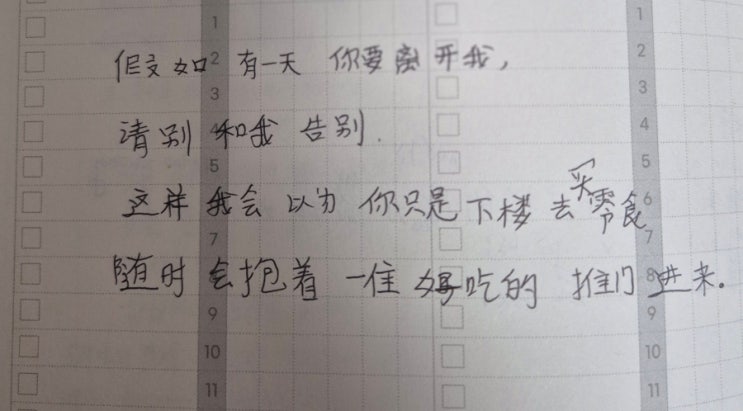 1 1
假如有一天 你要离开我,
2 2
3 3
请别和我告别.
4 4
5 5
这样我会以为你只是下楼去买零食
6
7 7
随时会抱着一堆好吃的 推门进来.
8
9 9
10 10
11 11